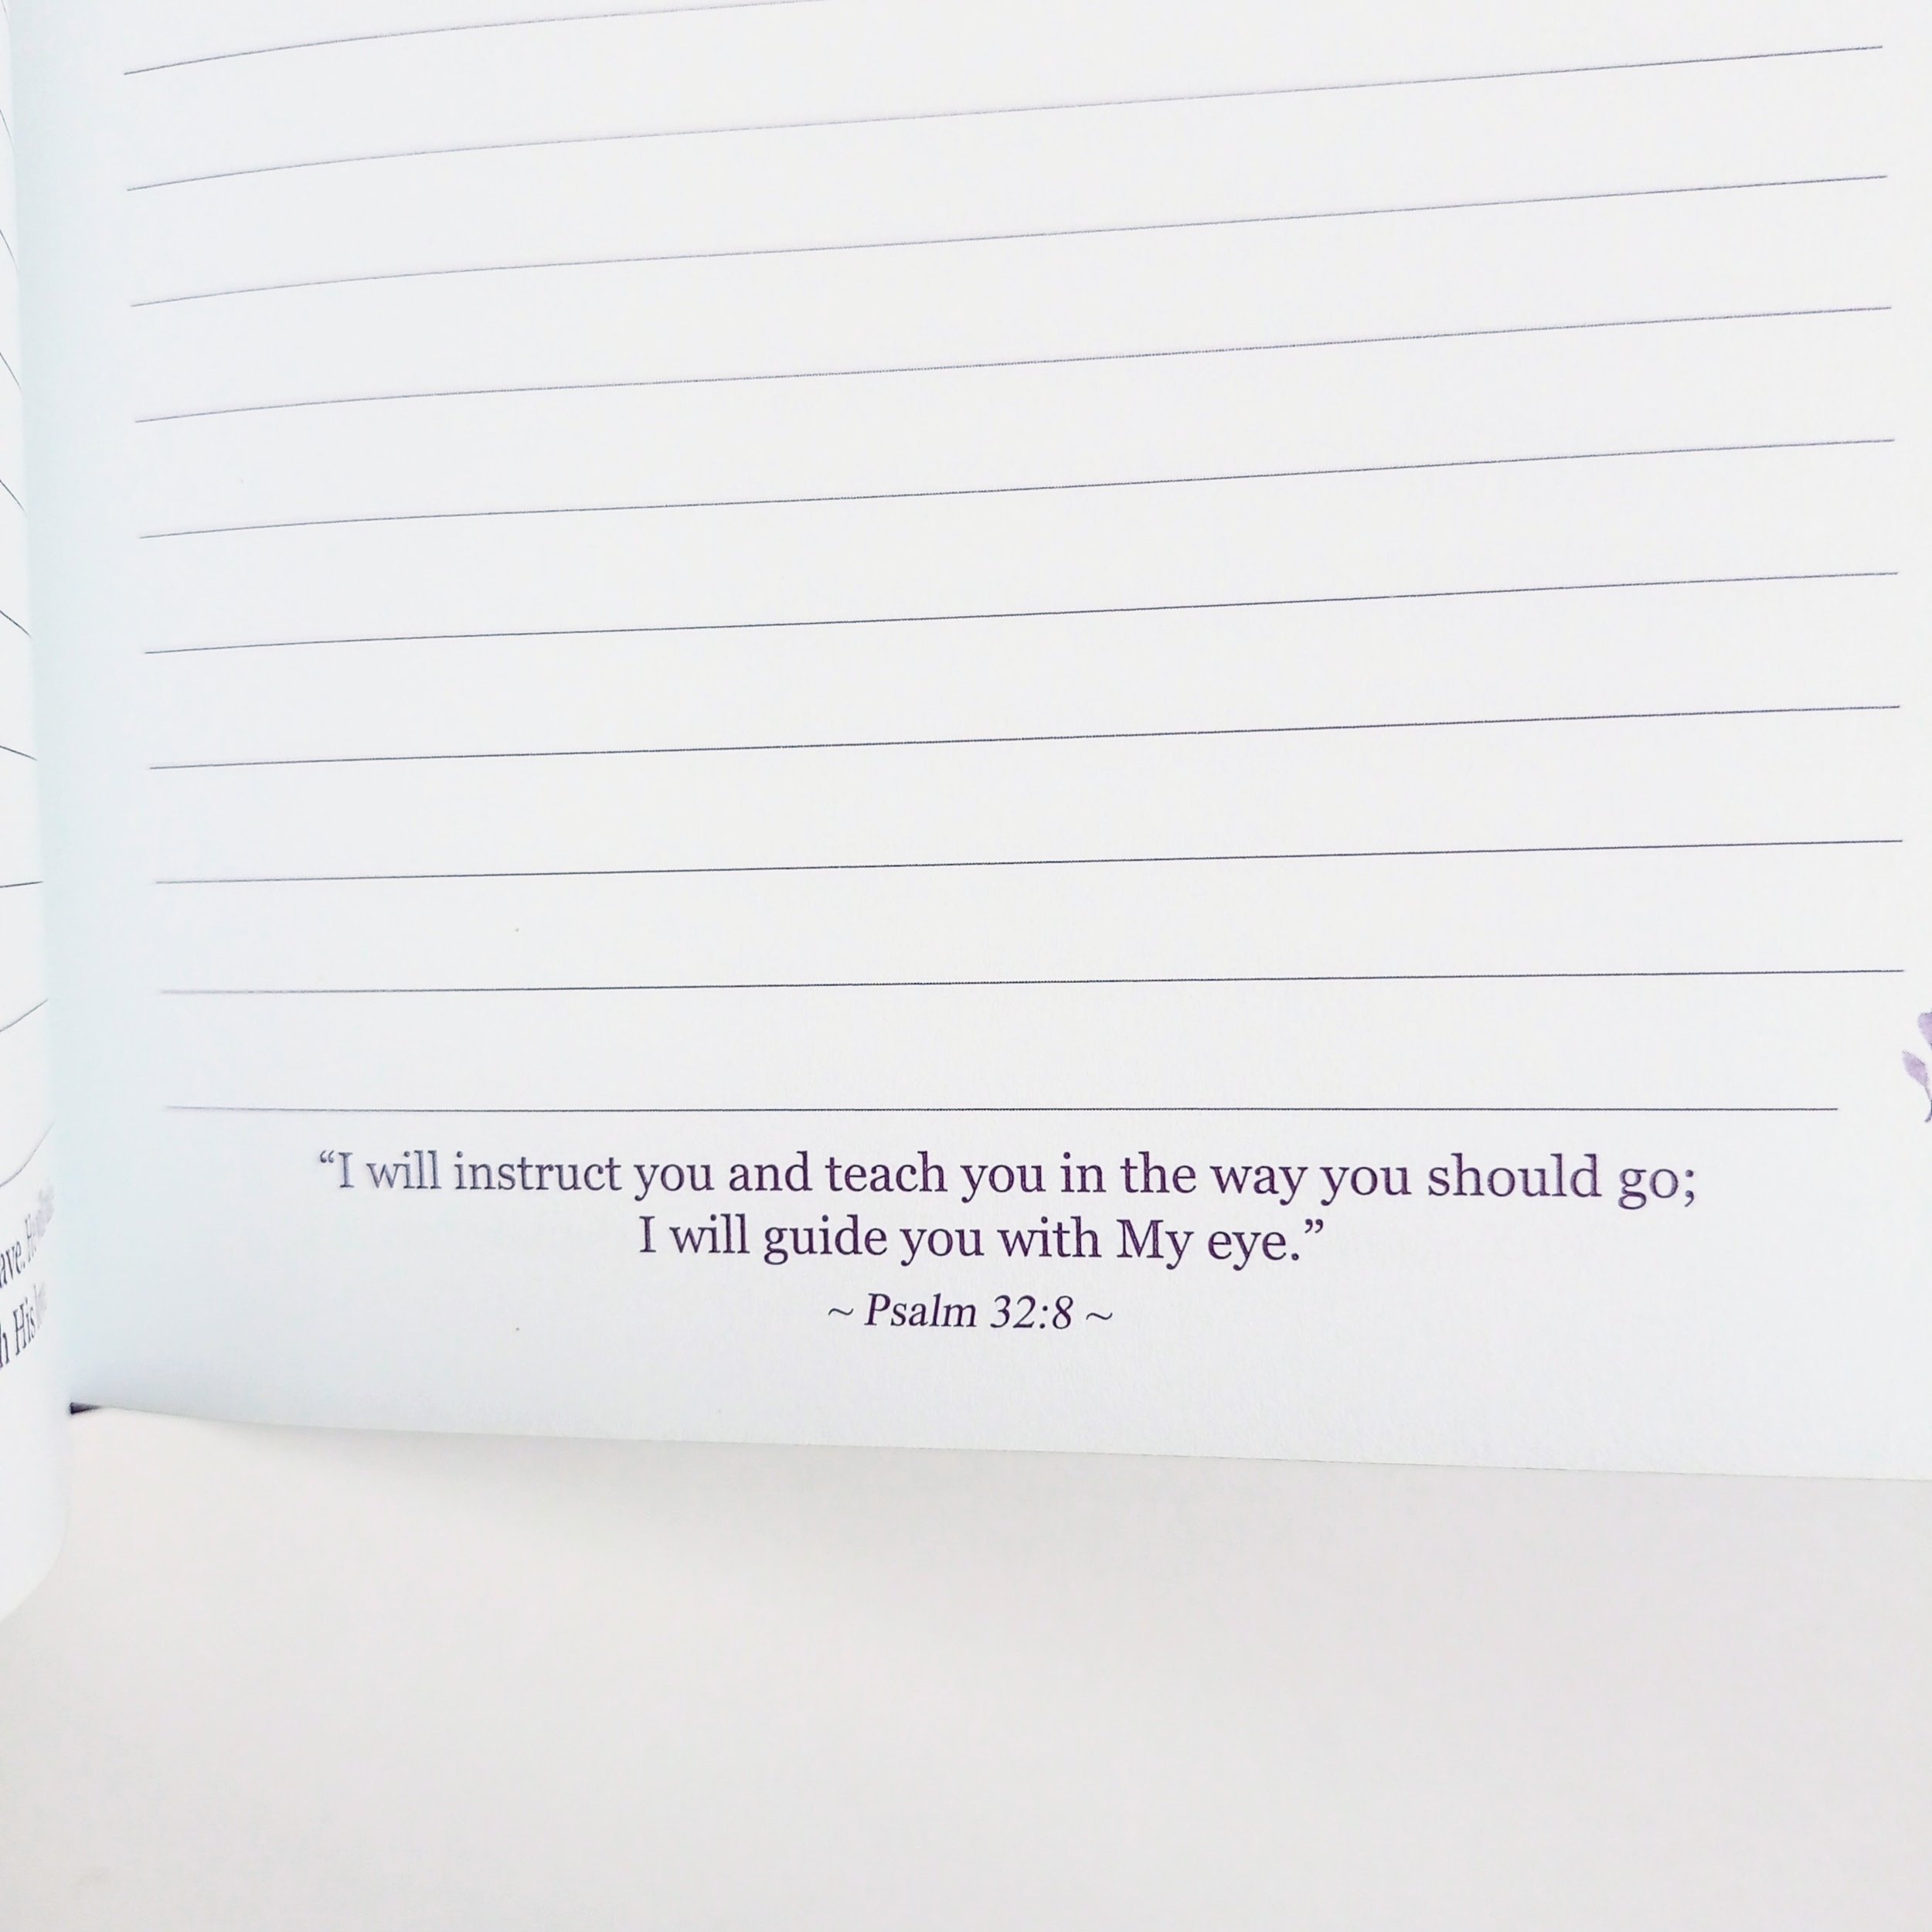 “I will instruct you and teach you in the way you should go;
I will guide you with My eye.”
~ Psalm 32:8 ~
His